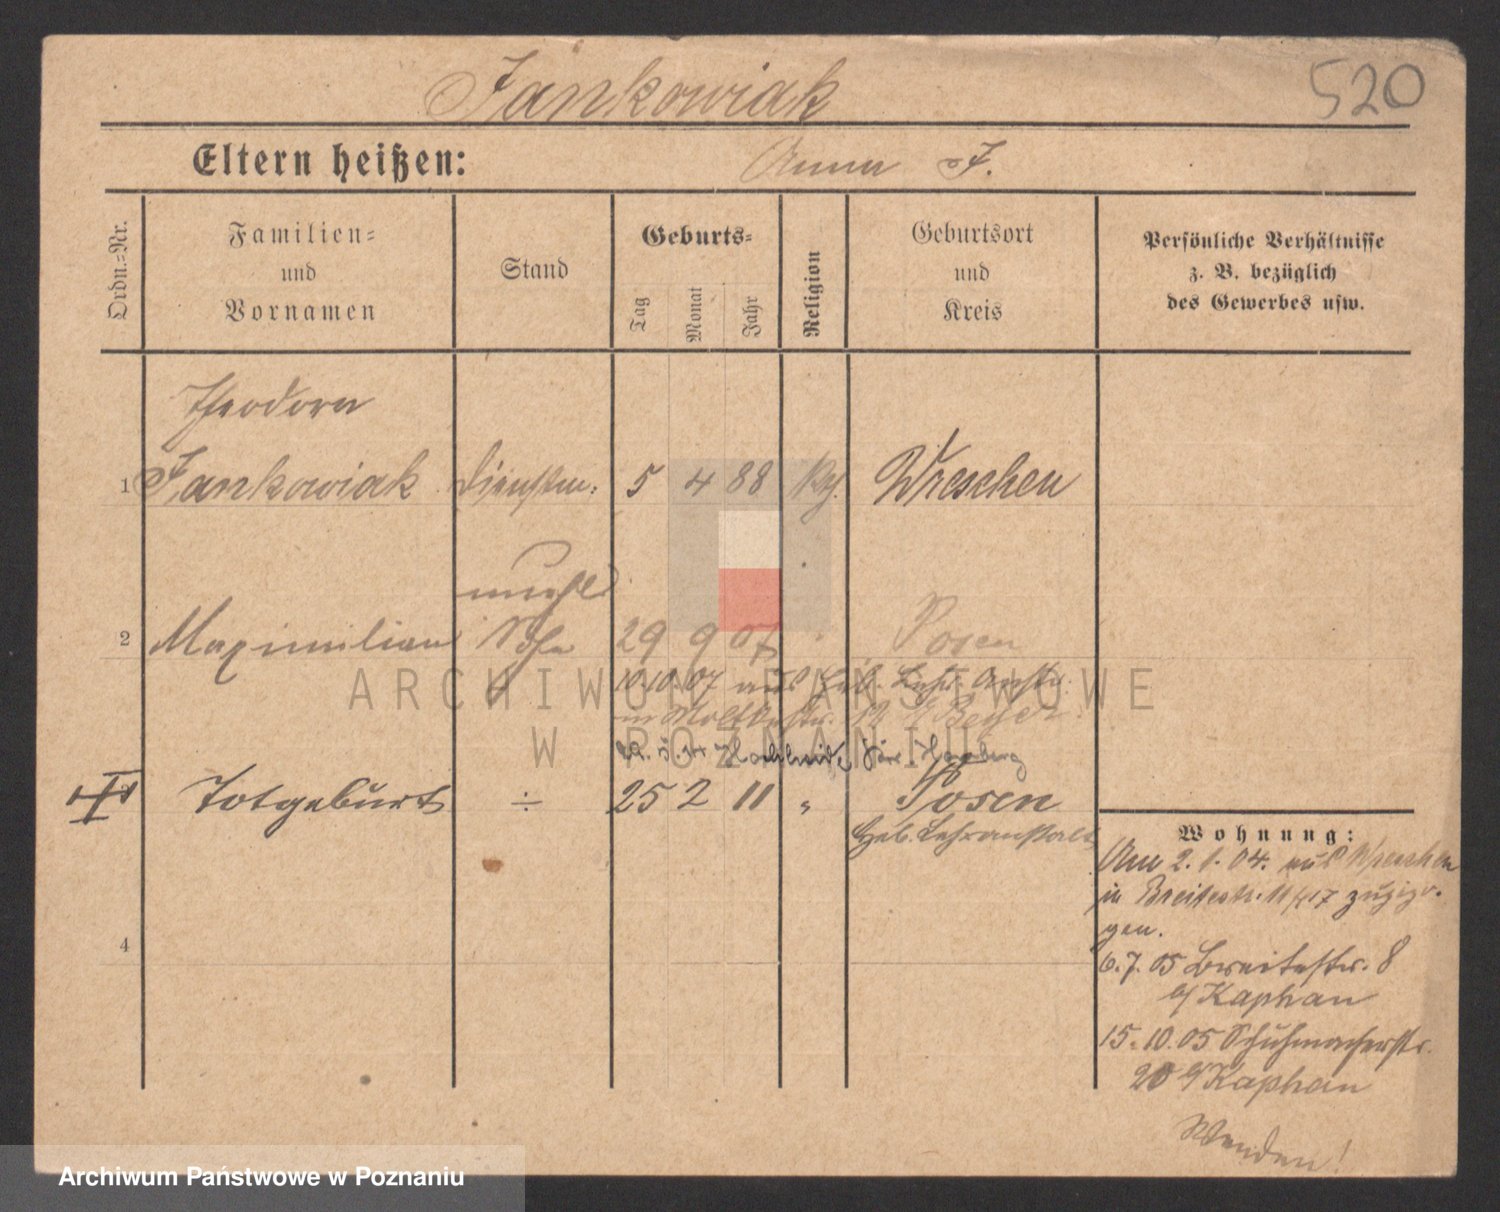 Jankowiak
520
Eltern heißen: Anna J.
Ordn.-Nr.
Familien-
und
Vornamen
Stand
Geburts-
Tag
Monat
Jahr
Religion
Geburtsort
und
Kreis
Persönliche Verhältnisse
z. B. bezüglich
des Gewerbes usw.
Theodora
1 Jankowiak Dienstm: 5 4 88 Wreschen
unehl
2 Maximilian Sohn 29 9 07 Posen
10.10.07 aus Heb. Lehr. Anstr.
in Moltkestr. 12 b/ Beyer
ARCHIWUM PAŃSTWOWE
W POZNANIU
Totgeburt ÷ 25 2 11 " Posen
Heb. Lehranstalt
Wohnung:
Am 2. 1. 04. aus Wreschen
in Breitestr. 17 zugezo-
gen.
6.7.05 Breitestr. 8
b/ Kaphan
15.10.05 Schuhmacherstr.
20 b/ Kaphan
4
Wenden!
Archiwum Państwowe w Poznaniu